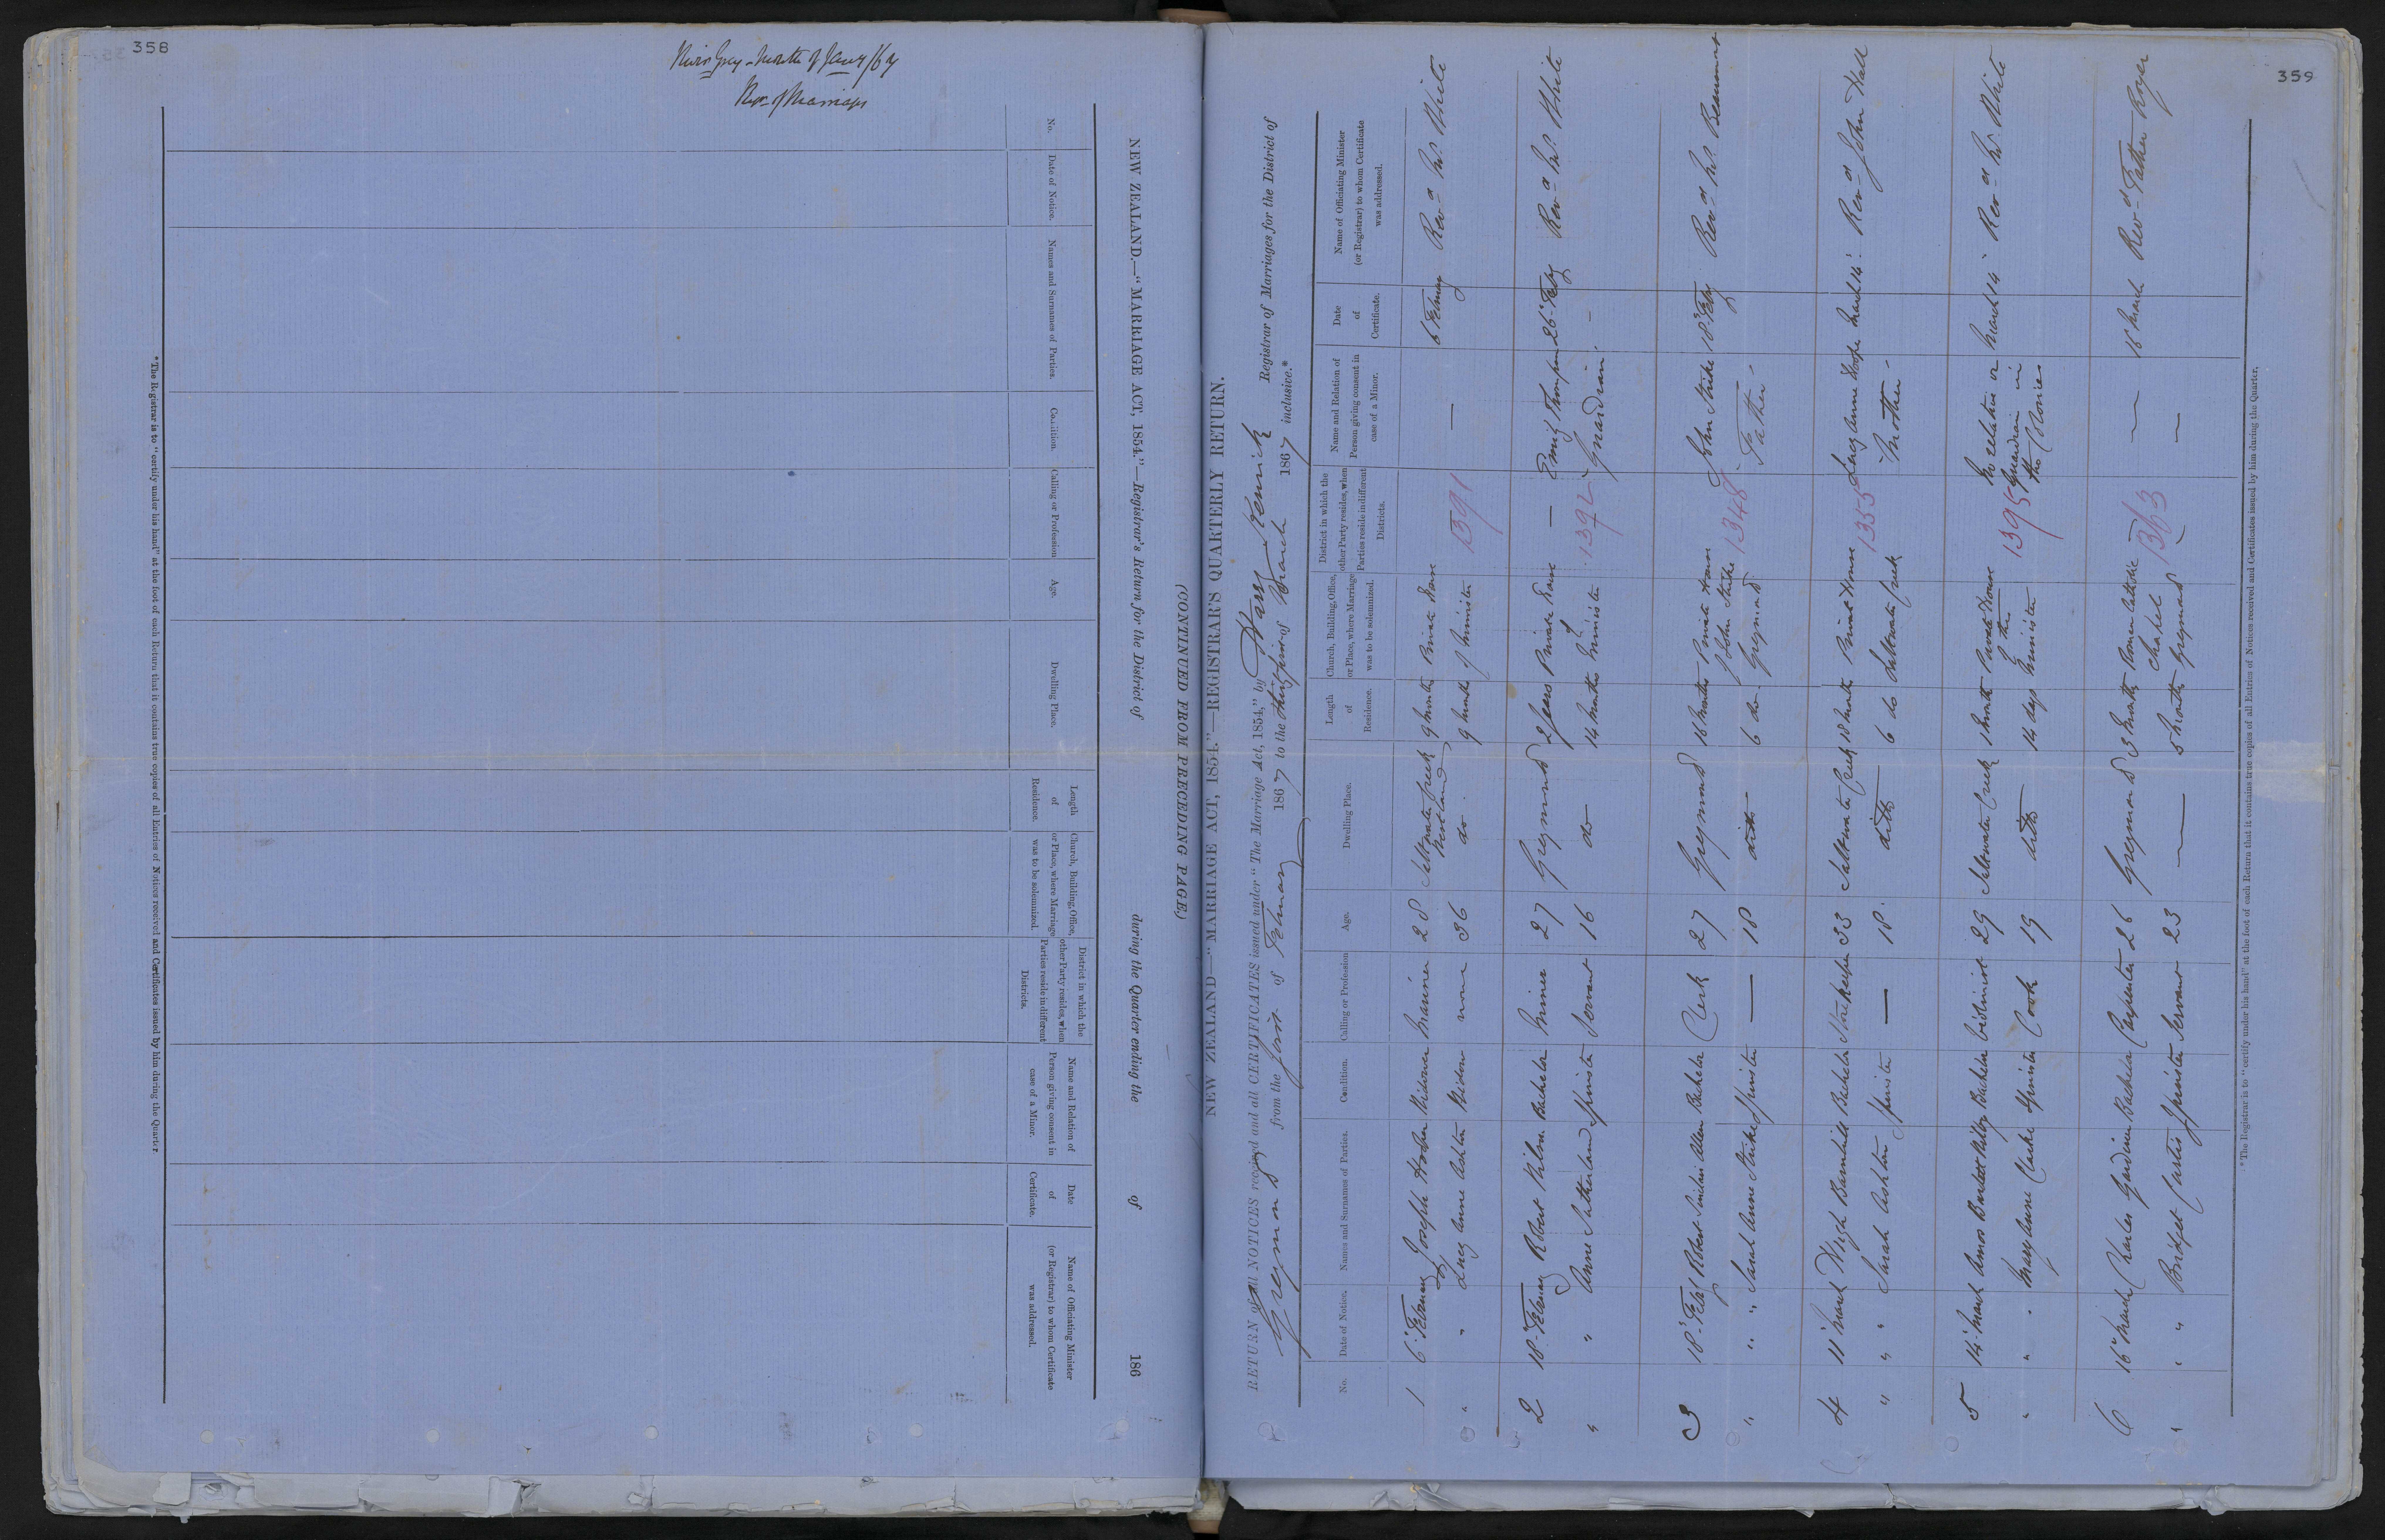 358
River Grey - Month of Jany /67
Regr. of Marriages
NEW ZEALAND.—"MARRIAGE ACT, 1854."—Registrar's Return for the District of during the Quarter ending the of 186
(CONTINUED FROM PRECEDING PAGE)
No.
Date of Notice.
Names and Surnames of Parties.
Condition.
Calling or Profession
Age.
Dwelling Place.
Length of Residence.
Church, Building, Office, or Place, where Marriage was to be solemnized.
District in which the other Party resides, when Parties reside in different Districts.
Name and Relation of Person giving consent in case of a Minor.
Date of Certificate.
Name of Officiating Minister (or Registrar) to whom Certificate was addressed.
*The Registrar is to "certify under his hand" at the foot of each Return that it contains true copies of all Entries of Notices received and Certificates issued by him during the Quarter
359
NEW ZEALAND—"MARRIAGE ACT, 1854."—REGISTRAR'S QUARTERLY RETURN.
RETURN of all NOTICES received and all CERTIFICATES issued under "The Marriage Act, 1854," by Harry Kenrick Registrar of Marriages for the District of
Greymouth from the first of February 1867 to the thirty first of March 1867 inclusive.*
No.
Date of Notice.
Names and Surnames of Parties.
Condition.
Calling or Profession
Age.
Dwelling Place.
Length of Residence.
Church, Building, Office, or Place, where Marriage was to be solemnized.
District in which the other Party resides, when Parties reside in different Districts.
Name and Relation of Person giving consent in case of a Minor.
Date of Certificate.
Name of Officiating Minister (or Registrar) to whom Certificate was addressed.
1 6 February Joseph Widower Mariner 28 Saltwater Creek Westland 9 months Private House — 6 February Revd. Mr. White
" " Lucy Anne Ashton Widow none 36 do. 9 months of Minister 1391
2 18 February Robert Wilson Bachelor Miner 27 Greymouth 2 years Private House — Emily Thompson 26 Feby Revd. Mr. White
" " Anne Sutherland Spinster Servant 16 do 14 months of Minister 1392 Guardian. —
3 18 Feby Robert Sinclair Allen Bachelor Clerk 27 Greymouth 16 months Private House John Strike 18 Feby Revd. Mr. Beaumont
" " " Sarah Anne Strike Spinster — 18 ditto 6 do. of John Strike Greymouth 1348 Father
4 11 March Hugh Barnhill Bachelor Storekeeper 33 Saltwater Creek 18 months Private House Lucy Anne March 14 Revd. John Hall
" " " Sarah Ashton Spinster — 18. ditto 6 do Saltwater Creek 1355 Mother
5 14 March Amos Bartlett Bachelor 29 Saltwater Creek 1 month Private House No relation or March 14 Revd. Mr. White
" " Mary Anne Clarke Spinster Cook 19 ditto 14 days of the Minister 1395 Guardian in the Colonies
6 16 March Charles Gardiner Bachelor Carpenter 26 Greymouth 3 months Roman Catholic — — 18 March Revd. Father Royer
" " " Bridget Curtis Spinster Servant 23 — 5 months Chapel Greymouth 1363 —
*The Registrar is to "certify under his hand" at the foot of each Return that it contains true copies of all Entries of Notices received and Certificates issued by him during the Quarter.